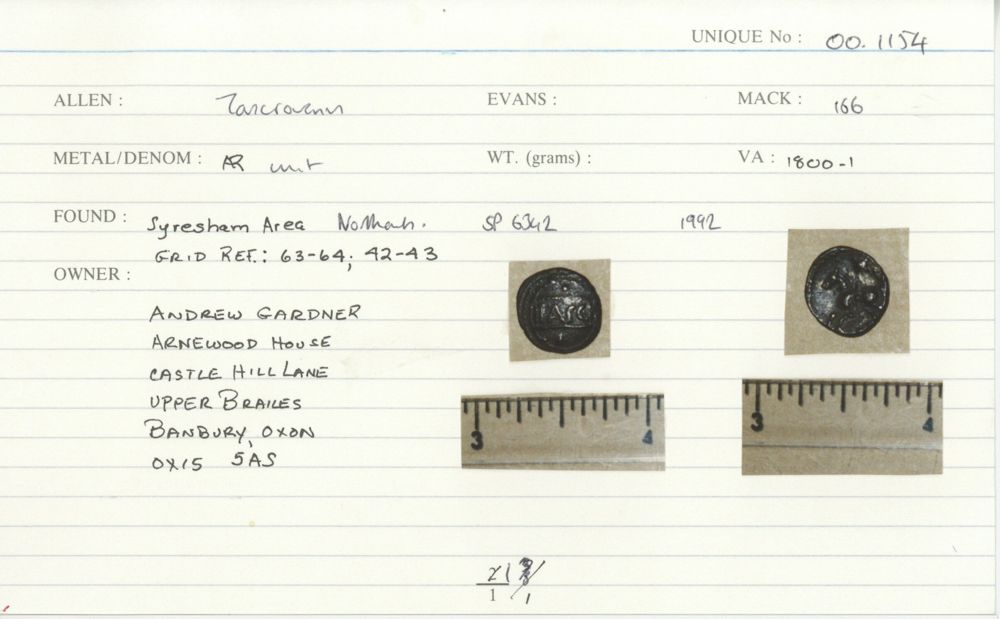 UNIQUE No : 00.1154
ALLEN : Tasciovanus EVANS : MACK : 166
METAL/DENOM : AR unit WT. (grams) : VA : 1800-1
FOUND : Syresham Area Northants. SP 6342 1992
GRID REF.: 63-64; 42-43
OWNER :
ANDREW GARDNER
ARNEWOOD HOUSE
CASTLE HILL LANE
UPPER BRAILES
BANBURY, OXON
OX15 5AS
TASC
3 4
3 4
21
1 1